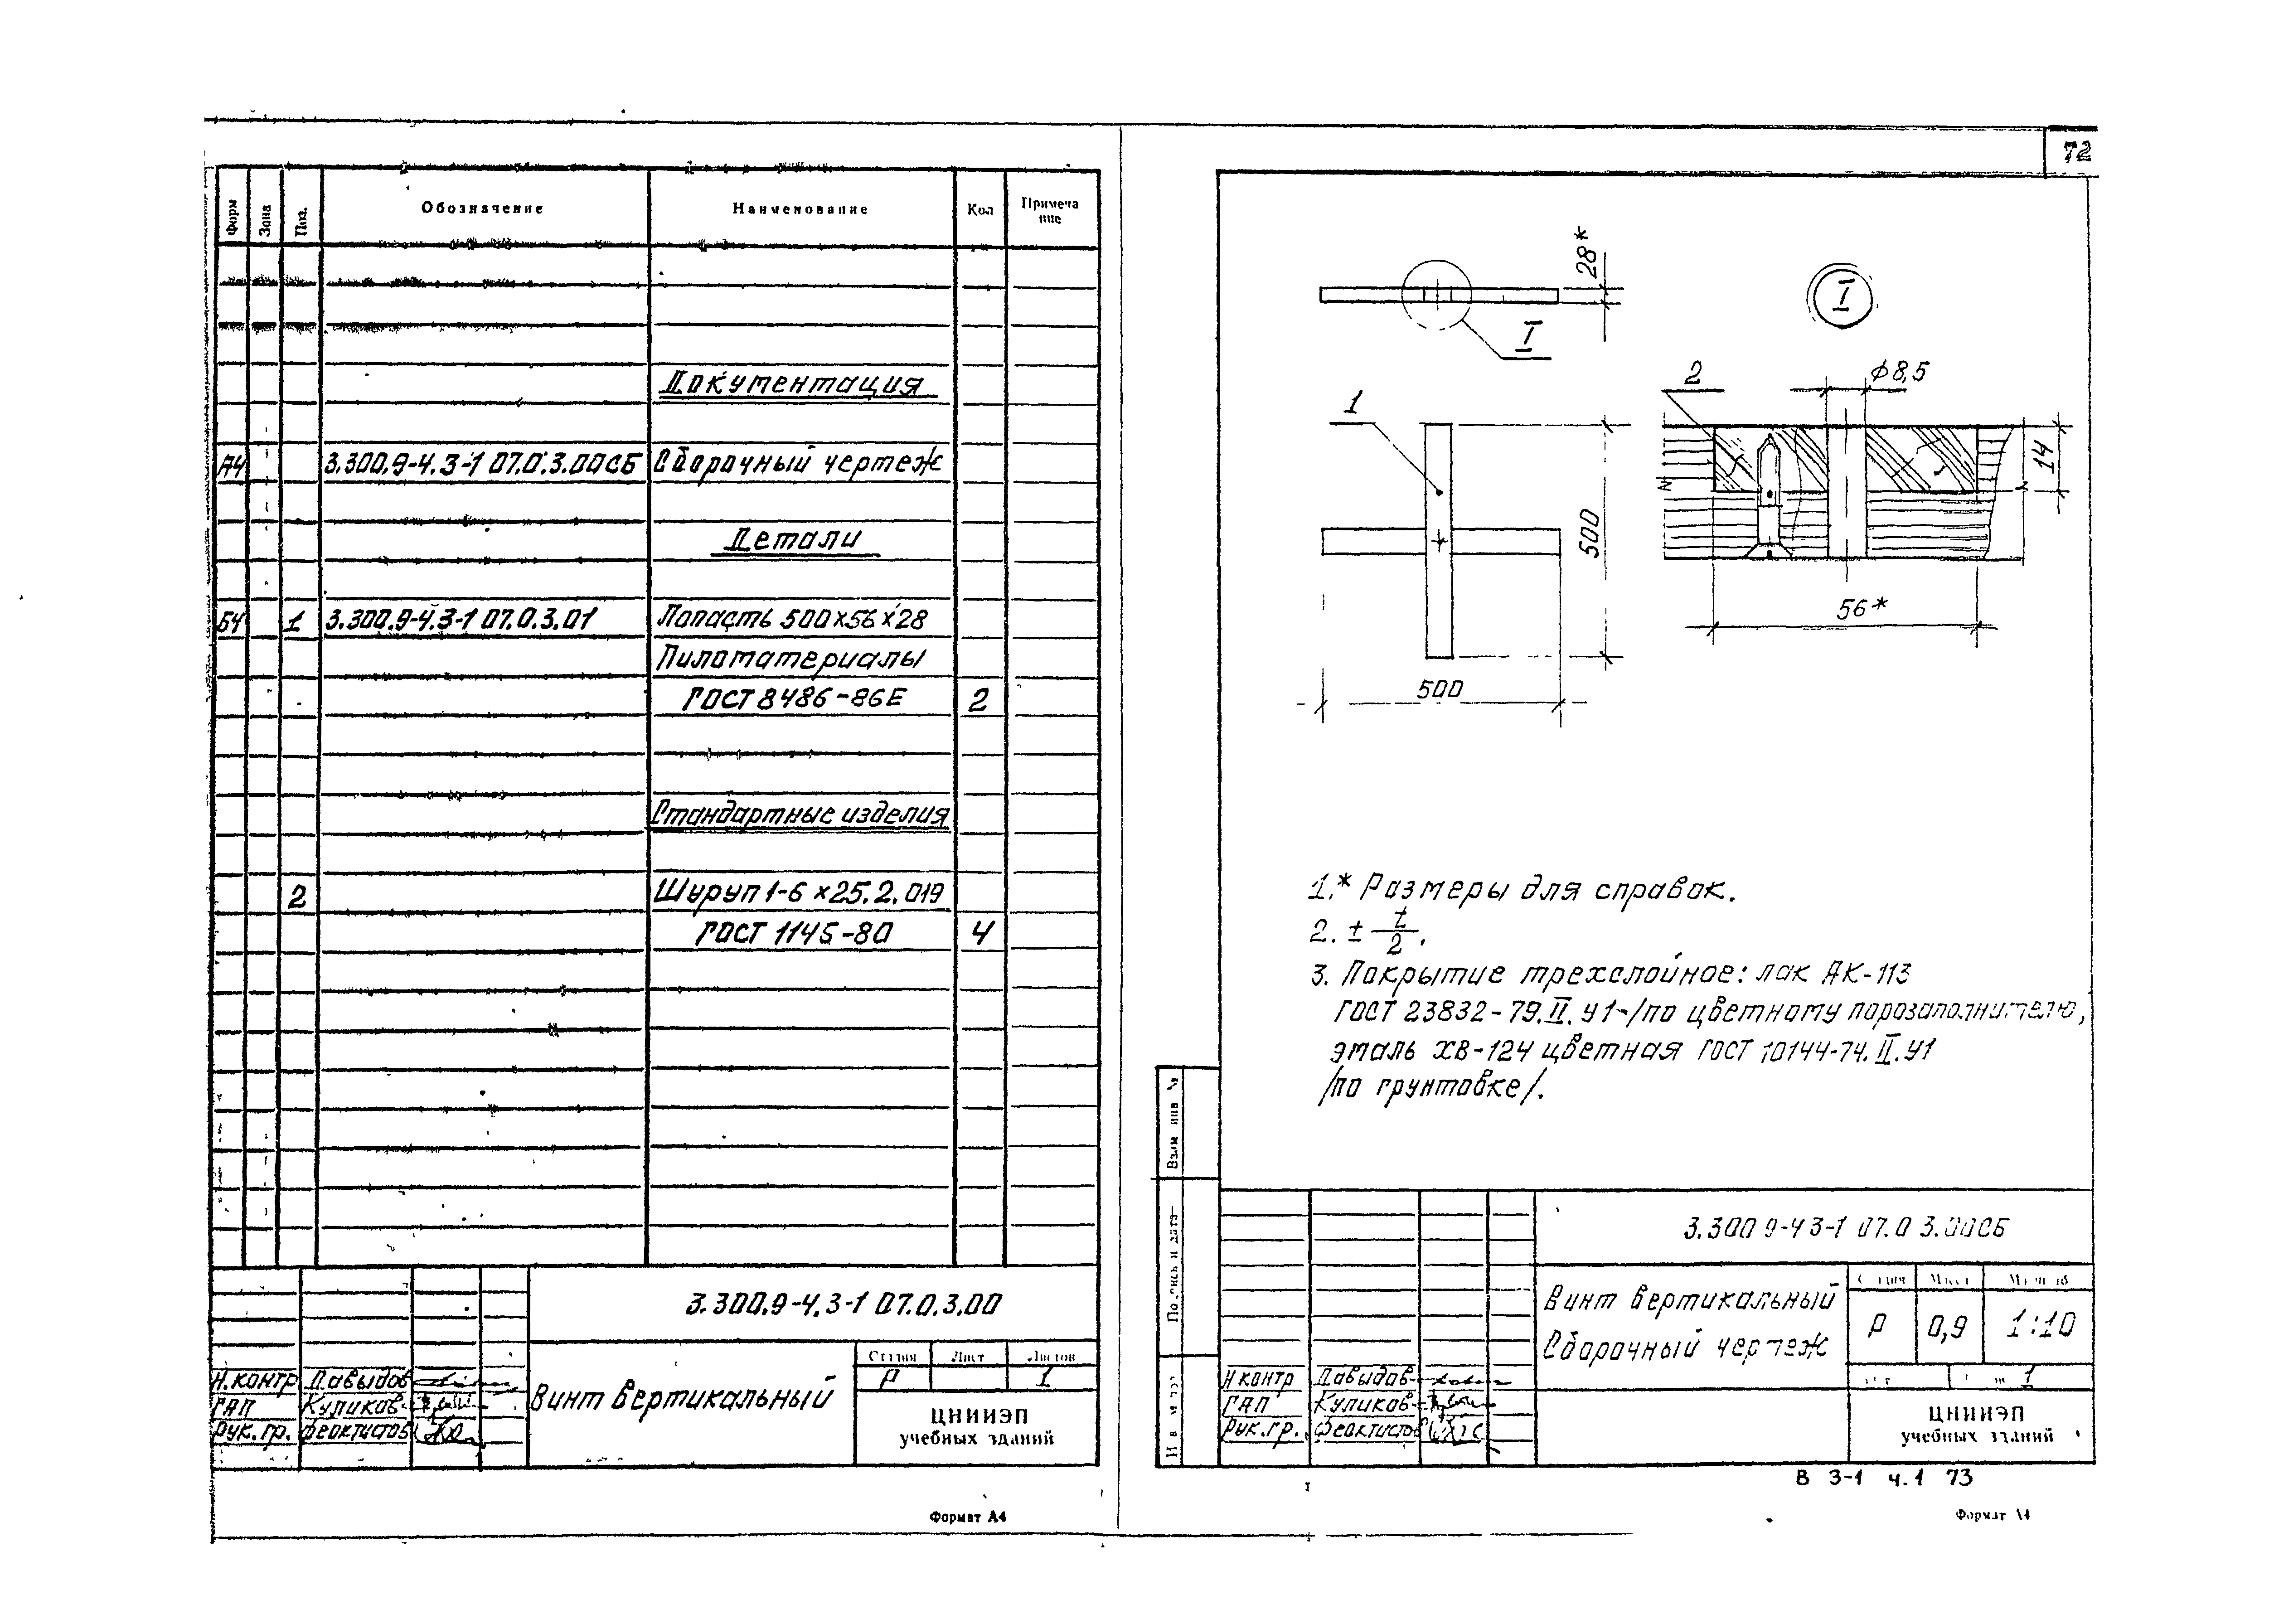 Форм Зона Поз. Обозначение Наименование Кол Примеча
ние
Документация
А4 3.300.9-4.3-1 07.0.3.00СБ Сборочный чертеж
Детали
Б4 1 3.300.9-4.3-1 07.0.3.01 Лопасть 500×56×28
Пиломатериалы
ГОСТ 8486-86Е 2
Стандартные изделия
2 Шуруп 1-6×25.2.019
ГОСТ 1145-80 4
3.300.9-4.3-1 07.0.3.00
Стадия Лист Листов
Р 1
Н.контр. Давыдов
ГАП Куликов
Рук.гр. Феоктистов
Винт вертикальный
ЦНИИЭП
учебных зданий
Формат А4
72
28*
I
I
1
500
500
2
ф8,5
14
56*
1.* Размеры для справок.
2. ± t/2.
3. Покрытие трехслойное: лак АК-113
ГОСТ 23832-79.II.У1-/по цветному порозаполнителю,
эмаль ХВ-124 цветная ГОСТ 10144-74.II.У1
/по грунтовке/.
Взам инв №
3.300 9-4 3-1 07.0 3.00СБ
Винт вертикальный
Сборочный чертеж
Р 0,9 1:10
1
Н контр Давыдов
ГАП Куликов
Рук.гр. Феоктистов
ЦНИИЭП
учебных зданий
В 3-1 ч.1 73
Формат А4